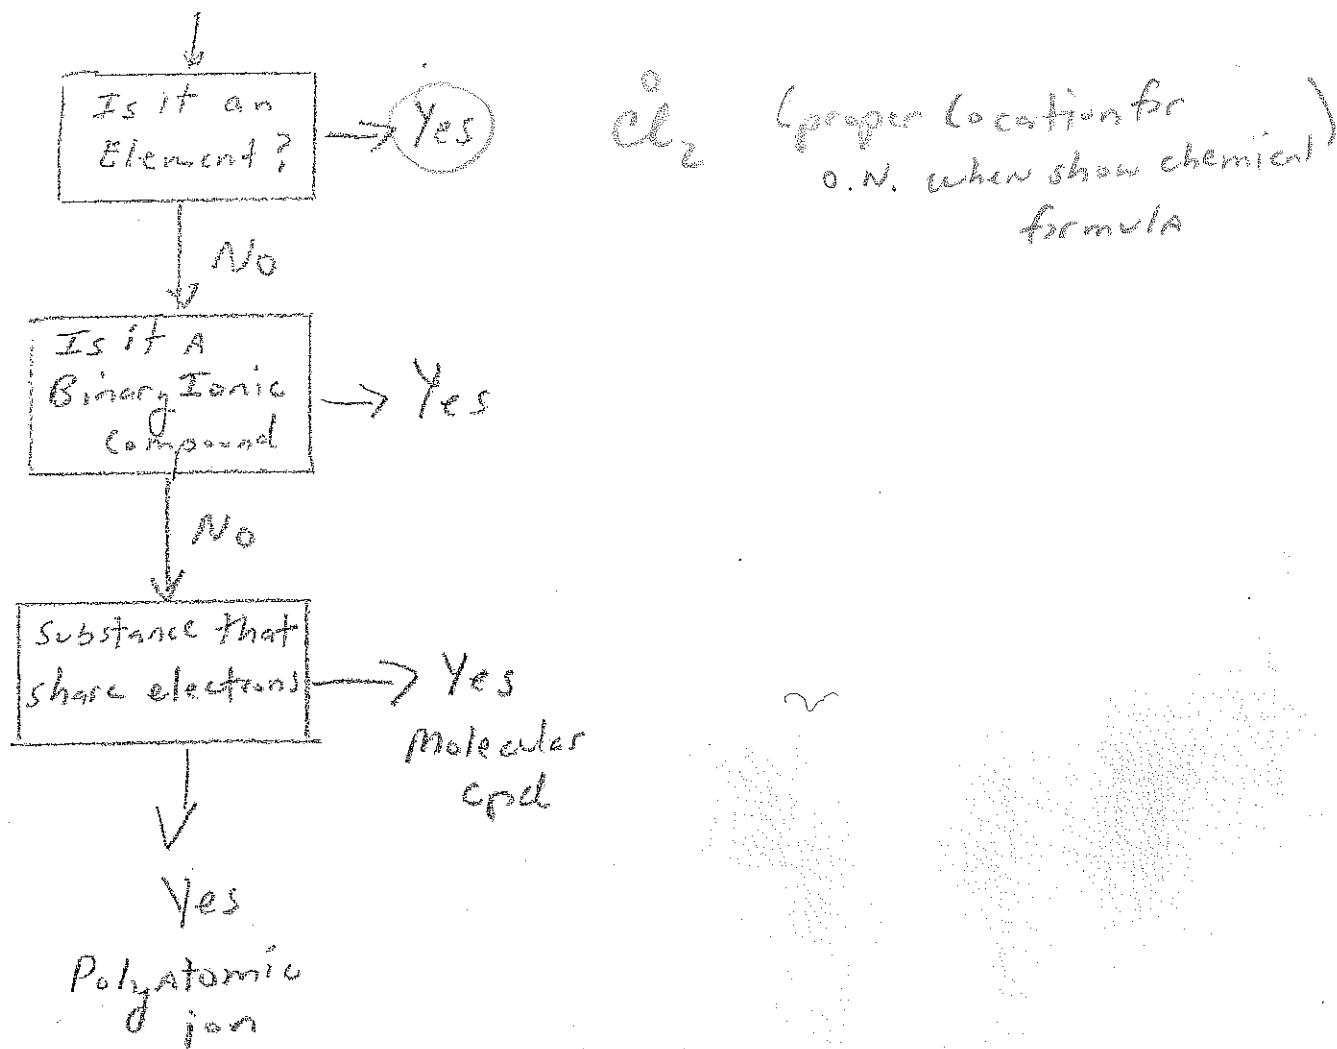 Is it an
Element?
Yes
O
Cl2
(proper location for
O.N. when show chemical)
formula
No
Is it A
Binary Ionic
Compound
Yes
No
Substance that
share electrons
Yes
Molecular
cpd
Yes
Polyatomic
ion